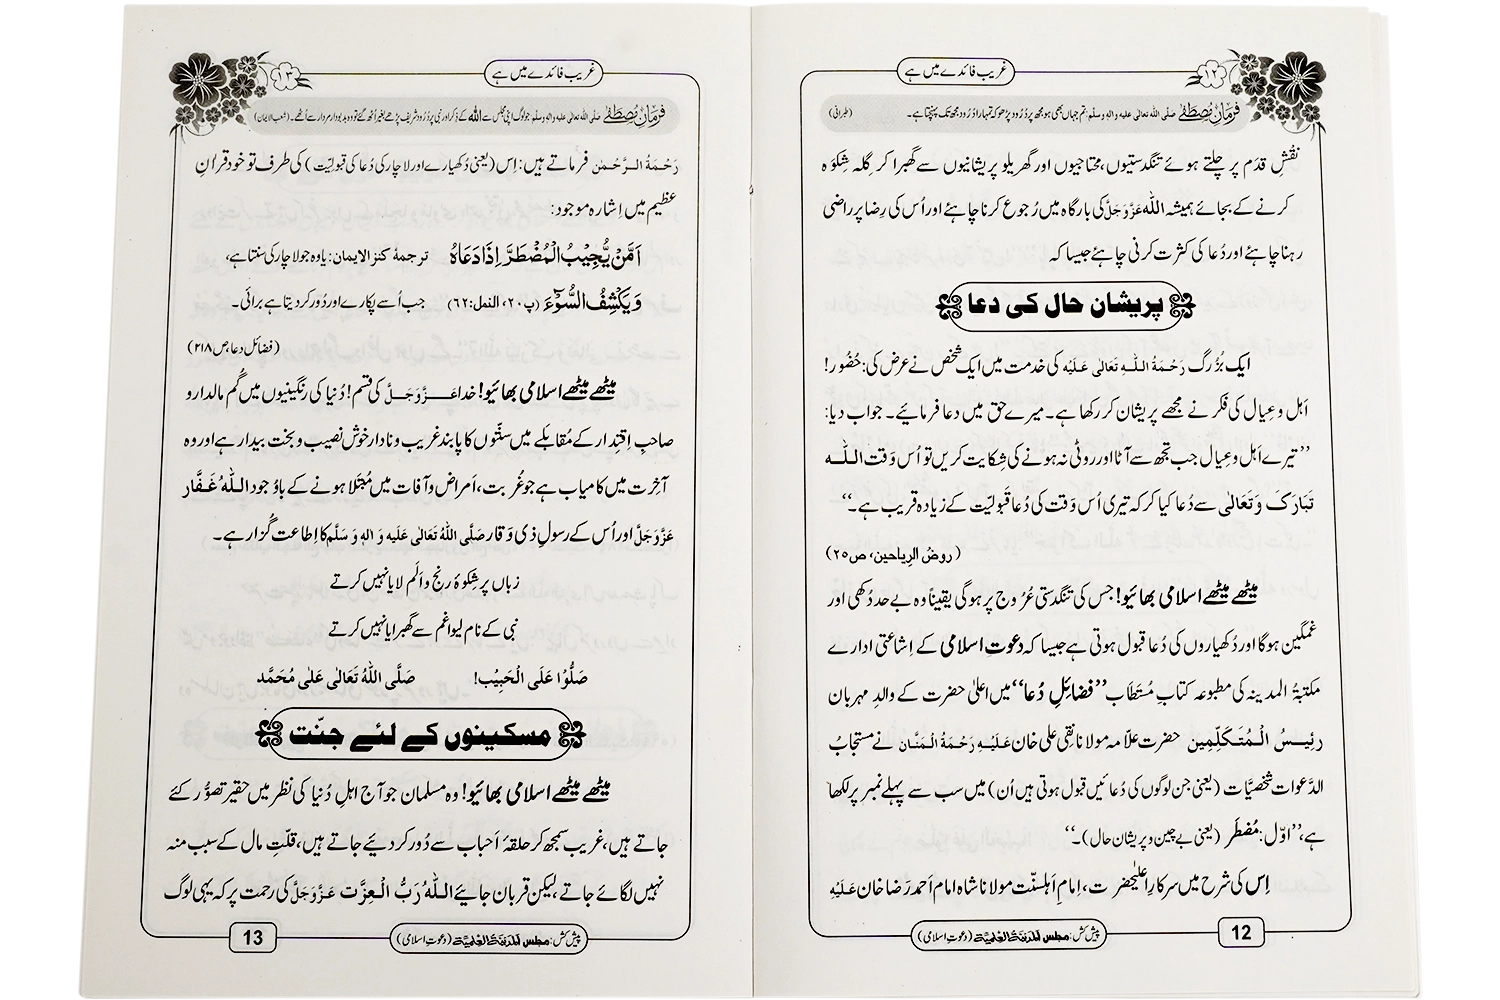 غریب فائدے میں ہے
١٢
فرمانِ مصطفےٰ صلی اللہ تعالٰی علیہ والہ وسلم: تم جہاں بھی ہو مجھ پر دُرُود پڑھو کہ تمہارا دُرُود مجھ تک پہنچتا ہے۔ (طبرانی)
نقْشِ قدَم پر چلتے ہوئے تنگدستیوں، محتاجیوں اور گھریلو پریشانیوں سے گھبرا کر گِلہ شِکْوَہ
کرنے کے بجائے ہمیشہ اللہ عَزَّوَجَلَّ کی بارگاہ میں رُجوع کرنا چاہئے اور اُس کی رِضا پر راضی
رہنا چاہئے اور دُعا کی کثرت کرنی چاہئے جیسا کہ
پریشان حال کی دعا
ایک بُزُرگ رَحْمَۃُ اللہِ تَعَالٰی عَلَیْہ کی خدمت میں ایک شخص نے عرض کی: حُضُور!
اَہل و عِیال کی فکر نے مجھے پریشان کر رکھا ہے۔ میرے حق میں دعا فرمائیے۔ جواب دیا:
’’تیرے اَہل و عِیال جب تجھ سے آٹا اور روٹی نہ ہونے کی شِکایت کریں تو اُس وَقت اللہ
تَبَارَکَ وَتَعَالٰی سے دُعا کیا کر کہ تیری اُس وَقت کی دُعا قَبولیّت کے زیادہ قریب ہے۔‘‘
(روضُ الرِیاحین، ص٢٥)
میٹھے میٹھے اسلامی بھائیو! جس کی تنگدستی عُرُوج پر ہوگی یقیناً وہ بے حد دُکھی اور
غمگین ہوگا اور دُکھیاروں کی دُعا قبول ہوتی ہے جیسا کہ دعوتِ اسلامی کے اِشاعتی ادارے
مکتبۃُ المدینہ کی مطبوعہ کتابِ مُستَطاب ’’فضائلِ دُعا‘‘ میں اعلیٰ حضرت کے والدِ مہربان
رئیسُ الْمُتَکَلِّمِین حضرت علّامہ مولانا نقی علی خان عَلَیْہِ رَحْمَۃُ الْمَنَّان نے مستجابُ
الدَّعوات شخصیّات (یعنی جن لوگوں کی دُعائیں قبول ہوتی ہیں اُن) میں سب سے پہلے نمبر پر لکھا
ہے، ’’اوّل: مُضْطَر (یعنی بے چین و پریشان حال)۔‘‘
اِس کی شَرح میں سرکارِ اعلیٰحضرت، امامِ اَہلسنّت مولانا شاہ امام اَحمد رَضا خان عَلَیْہِ
پیش کش: مجلس المدینۃ العلمیۃ (دعوتِ اسلامی)
12
غریب فائدے میں ہے
١٣
فرمانِ مصطفےٰ صلی اللہ تعالٰی علیہ والہ وسلم: جو لوگ اپنی مجلس سے اللہ کے ذکر اور نبی پر دُرُود شریف پڑھے بغیر اُٹھ گئے تو وہ بدبودار مردار سے اُٹھے۔ (شعب الایمان)
رَحْمَۃُ الرَّحْمٰن فرماتے ہیں: اِس (یعنی دُکھیارے اور لاچار کی دُعا کی قبولیّت) کی طرف تو خود قراٰنِ
عظیم میں اِشارہ موجود:
اَمَّنْ یُّجِیْبُ الْمُضْطَرَّ اِذَا دَعَاہُ ترجمۂ کنز الایمان: یا وہ جو لاچار کی سنتا ہے،
وَیَکْشِفُ السُّوْٓءَ (پ٢٠، النمل: ٦٢) جب اُسے پکارے اور دُور کر دیتا ہے برائی۔
(فضائل دعا، ص ٢١٨)
میٹھے میٹھے اسلامی بھائیو! خدا عَزَّوَجَلَّ کی قسم! دُنیا کی رنگینیوں میں گُم مالدار و
صاحبِ اِقتِدار کے مُقابلے میں سنّتوں کا پابند غریب و نادار خوش نصیب و بخت بیدار ہے اور وہ
آخِرت میں کامیاب ہے جو غُربت، اَمراض و آفات میں مُبتَلا ہونے کے باوُجود اللہُ غَفَّار
عَزَّوَجَلَّ اور اُس کے رسولِ ذی وَقار صَلَّی اللہُ تَعَالٰی عَلَیہِ وَ اٰلہٖ وَ سَلَّم کا اِطاعت گُزار ہے۔
زباں پر شِکوۂ رنج و اَلَم لایا نہیں کرتے
نبی کے نام لیوا غم سے گھبرایا نہیں کرتے
صَلُّوْا عَلَی الْحَبِیْب! صَلَّی اللہُ تَعَالٰی عَلٰی مُحَمَّد
مسکینوں کے لئے جنّت
میٹھے میٹھے اسلامی بھائیو! وہ مسلمان جو آج اہلِ دُنیا کی نظر میں حقیر تصوُّر کئے
جاتے ہیں، غریب سمجھ کر حلقۂ اَحباب سے دُور کر دیئے جاتے ہیں، قلّتِ مال کے سبب منہ
نہیں لگائے جاتے، لیکن قربان جائیے اللہُ رَبُّ الْعِزَّت عَزَّوَجَلَّ کی رحمت پر کہ یہی لوگ
پیش کش: مجلس المدینۃ العلمیۃ (دعوتِ اسلامی)
13